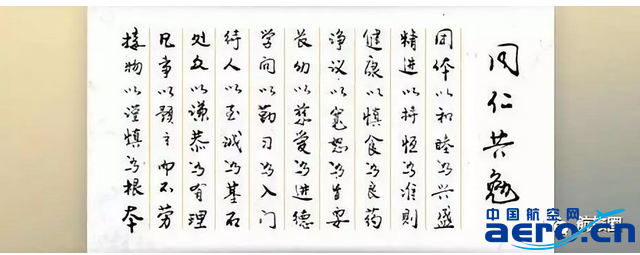 同仁共勉
团体以和睦为兴盛
精进以持恒为准则
健康以慎食为良药
诤议以宽恕为旨要
长幼以慈爱为进德
学问以勤习为入门
待人以至诚为基石
处众以谦恭为有理
凡事以预立而不劳
接物以谨慎为根本
中国航空网
aero.cn